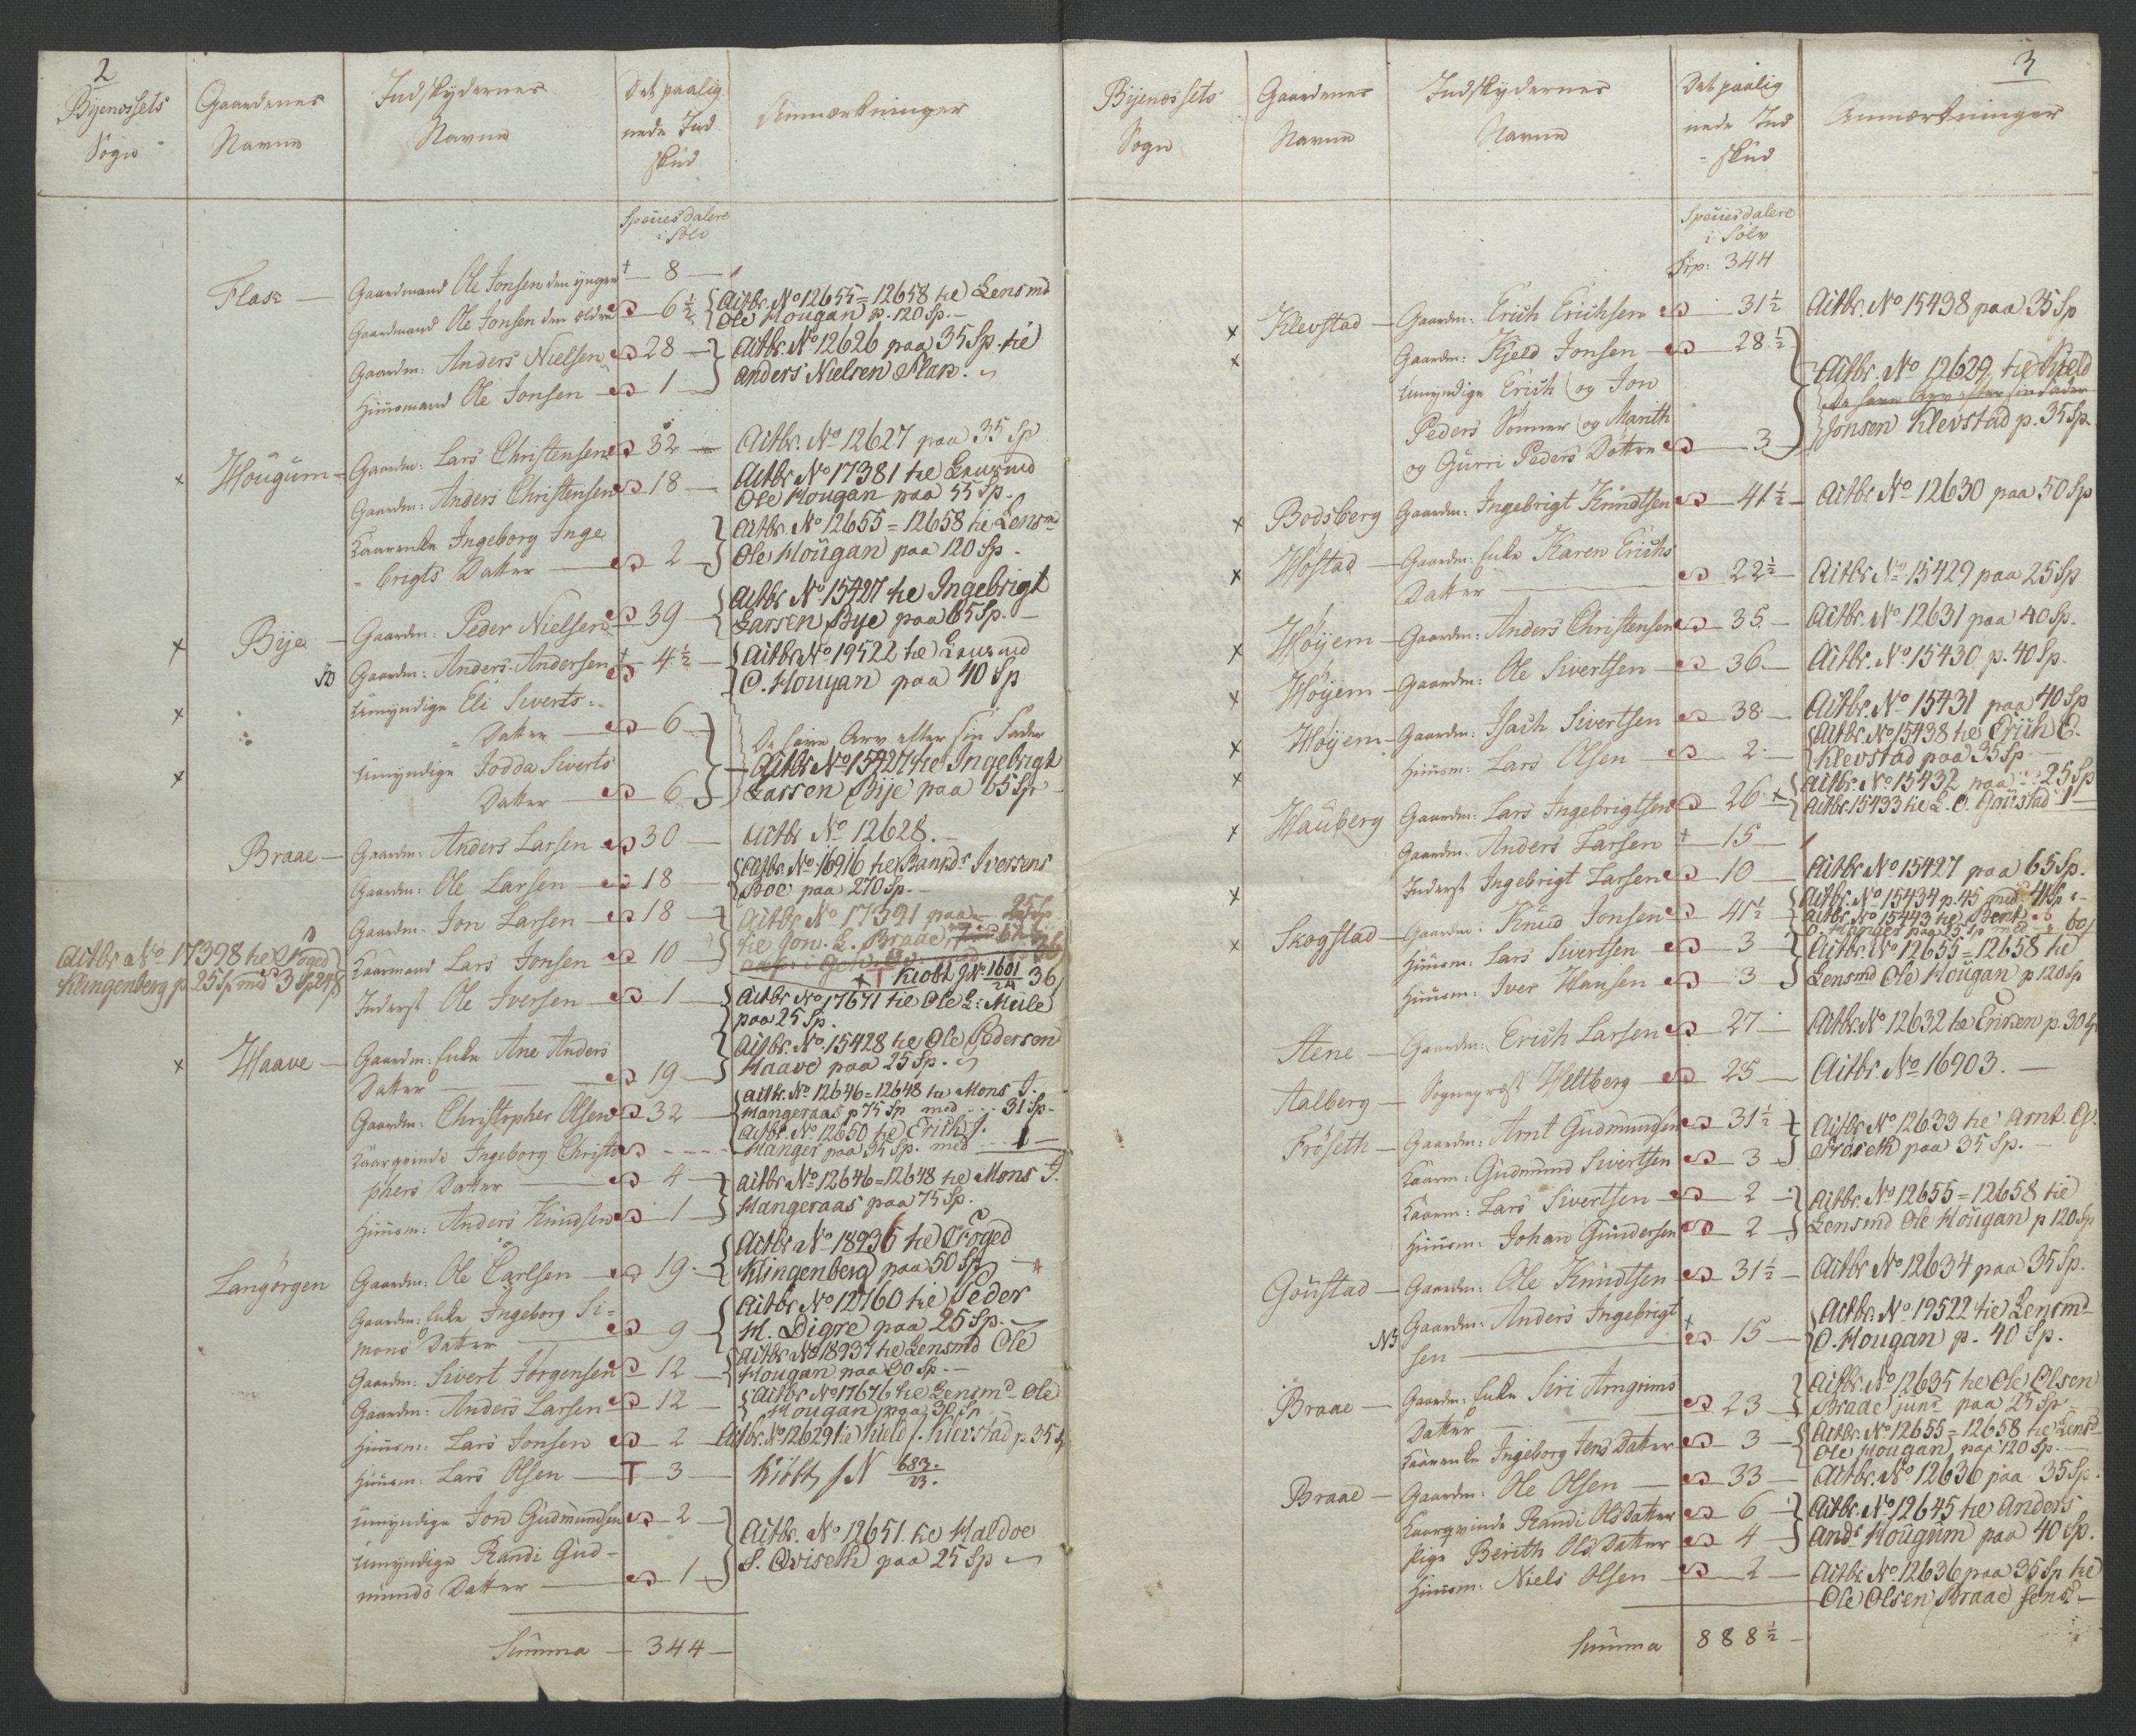 2
Bynæssets Sogn
Gaardenes Navne
Indskydernes Navne
Det paalignede Indskud
Anmærkninger
Speciesdalere i Sølv
Flaae — Gaardmand Ole Jonsen den yngre — 8 —
Gaardmand Ole Jonsen den ældre — 6½ {Actbr. No 12655=12658 til Lensmd
Ole Hougan p. 120 Sp. —
Gaardm: Anders Nielsen — 28 — } Actbr. No 12626 paa 35 Sp. til
Huusmand Ole Jonsen — 1 — Anders Nielsen Flaae.
Hougum — Gaardm: Lars Christensen — 32 — Actbr. No 12627 paa 35 Sp
Gaardm: Anders Christensen — 18 — Actbr No 17381 til Lensmd
Ole Hougan paa 55 Sp.
Kaarenke Ingeborg Inge
brigts Datter — 2 — } Actbr. No 12655=12658 til Lensmd
Ole Hougan paa 120 Sp.
Bye — Gaardm: Peder Nielsen — 39 — {Actbr No 15427 til Ingebrigt
Larsen Bye paa 65 Sp. —
Gaardm: Anders Andersen — 4½ — {Actbr No 19522 til Lensmd
O. Hougan paa 40 Sp
Umyndige Eli Siverts
Datter — 6 — De have Arv efter sin Fader
Umyndige Jodda Siverts
Datter — 6 — Actbr No 15427 til Ingebrigt
Larsen Bye paa 65 Sp
Braae — Gaardm: Anders Larsen — 30 — Actbr No 12628. —
Gaardm: Ole Larsen — 18 — {Actbr. No 16916 til Iversens
Boe paa 270 Sp. —
Gaardm: Jon Larsen — 18 — Actbr No 17391 paa — 25 Sp
Kaarmand Lars Jonsen — 10 — til Jon L. Braae
Kiøbt J. No 1601/24 36
Actbr No 17398 til Foged
Klingenberg p 25 Sp md 3 Sp
Inderst Ole Iversen — 1 — {Actbr No 17671 til Ole L: Mule
paa 25 Sp.
Haave — Gaardm: Enke Ane Anders
Datter — 19 — } Actbr. No 15428 til Ole Pedersen
Haave paa 25 Sp.
Gaardm: Christopher Olsen — 32 — {Actbr. No 12646=12648 til Mons J.
Hangeraas p 75 Sp med — 31 Sp.
Kaarqvinde Ingeborg Christo Actbr. No 12650 til Erich J.
Hanger paa 35 Sp. med — 1 —
phers Datter — 4 — Actbr No 12646=12648 til Mons J.
Huusm: Anders Knudsen — 1 — Hangeraas paa 75 Sp.
Langörgen Gaardm: Ole Carlsen — 19 — {Actbr No 18936 til Foged
Klingenberg paa 50 Sp —
Gaardm: Enke Ingeborg Si=
mons Datter — 9 — {Actbr No 12160 til Peder
H. Digre paa 25 Sp. —
Gaardm: Sivert Jörgensen — 12 — {Actbr No 18937 til Lensmd Ole
Hougan paa 90 Sp. —
Gaardm: Anders Larsen — 12 — {Actbr No 17676 til Lensmd Ole
Hougan paa 30 Sp
Huusm: Lars Jonsen — 2 — Actbr. No 12629 til Kield J. Klevstad p. 35 Sp
Huusm: Lars Olsen — T 3 — Kiöbt J N 683./23.
Umyndige Jon Gudmundsen — 2 — Actbr. No 12651. til Haldoe
Umyndige Randi Gud-
munds Datter — 1 — S. Qviseth paa 25 Sp
Summa — 344 —
3
Bynæssets Sogn
Gaardenes Navne
Indskydernes Navne
Det paalignede Indskud
Anmærkninger
Speciesdalere i Sölv
Trp: 344
Klevstad — Gaardm: Erich Erichsen — 31½ Actbr. No 15438 paa 35 Sp
Gaardm: Kjeld Jonsen — 28½ Actbr. No 12629 til Kield
Umyndige Erich og Jon
Peders Sønner og Marith
og Gurri Peders Døttre — 3 — Jonsen Klevstad p. 35 Sp.
Bodsberg Gaardm: Ingebrigt Knudtsen — 41½ — Actbr No 12630 paa 50 Sp
Höstad — Gaardm: Enke Karen Erichs
Datter — 22½ — Actbr No 15429 paa 25 Sp
Höyem — Gaardm: Anders Christensen — 35 — Actbr. No 12631 paa 40 Sp.
Höyem — Gaardm: Ole Sivertsen — 36 — Actbr. No 15430 p. 40 Sp.
Höyem — Gaardm: Isach Sivertsen — 38 — Actbr. No 15431 paa 40 Sp
Huusm: Lars Olsen — 2 — {Actbr. No 15438 til Erich E.
Klevstad paa 35 Sp —
Hauberg Gaardm: Lars Ingebrigtsen — 26 {Actbr. No 15432 paa — 25 Sp
Actbr. 15433 til L. O. Goustad 1 —
Gaardm: Anders Larsen — 15 —
Inderst Ingebrigt Larsen — 10 Actbr No 15427 paa 65 Sp.
Skogstad — Gaardm: Knud Jonsen — 41½ {Actbr. No 15434 p. 45 med 41 Sp
Actbr. No 15443 til Bent
O. Hanger paa 25 Sp med
Huusm: Lars Sivertsen — 3 } Actbr. No 12655=12658 til
Huusm: Iver Hansen — 3 Lensmd Ole Hougan p 120 Sp
Stene — Gaardm: Erich Larsen — 27 Actbr. No 12632 til Eriksen p. 30 Sp
Aalberg — Sognepræst Heltberg — 25 — Actbr. No 16903. —
Fröseth — Gaardm: Arnt Gudmundsen — 31½ Actbr No 12633 til Arnt G.
Kaarm: Gudmund Sivertsen — 3 Fröseth paa 35 Sp. —
Kaarm: Lars Sivertsen — 2 Actbr. No 12655=12658 til
Huusm: Johan Gundersen — 2 Lensmd Ole Hougan p 120 Sp
Goustad — Gaardm: Ole Knudtsen — 31½ — Actbr No 12634 paa 35 Sp.
NB Gaardm: Anders Ingebrigt
sen — 15 — {Actbr. No 19522 til Lensmd
O. Hougan p. 40 Sp.
Braae — Gaardm: Enke Siri Arngrims
Datter — 23 — Actbr. No 12635 til Ole Olsen
Braae junr paa 25 Sp —
Kaarenke Ingeborg Jens Datter — 3 — {Actbr. No 12655=12658 til Lensd
Ole Hougan paa 120 Sp. —
Braae — Gaardm: Ole Olsen — 33 — Actbr. No 12636 paa 35 Sp.
Kaarqvinde Randi Olsdatter — 6 Actbr. No 12645 til Anders
Pige Berith Ols Datter — 4 Ands Hougum paa 40 Sp.
Huusm: Niels Olsen — 2 — Actbr No 12636 paa 35 Sp til
Ole Olsen Braae senr —
Summa 888½ —